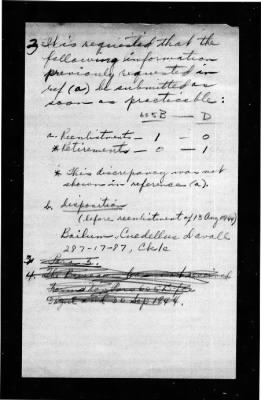 3 It is requested that the
following information
previously requested in
ref (a) be submitted as
soon as practicable:
605B — D
a. Reenlistments — 1 — 0
*Retirements — 0 — 1
* This discrepancy was not
shown in reference (a).
b. disposition
(before reenlistment of 13 Aug 1944)
Bailum, Cuedellus Lavall
287-17-87, Ck/c
3.
4. The
26 Sep 1944.